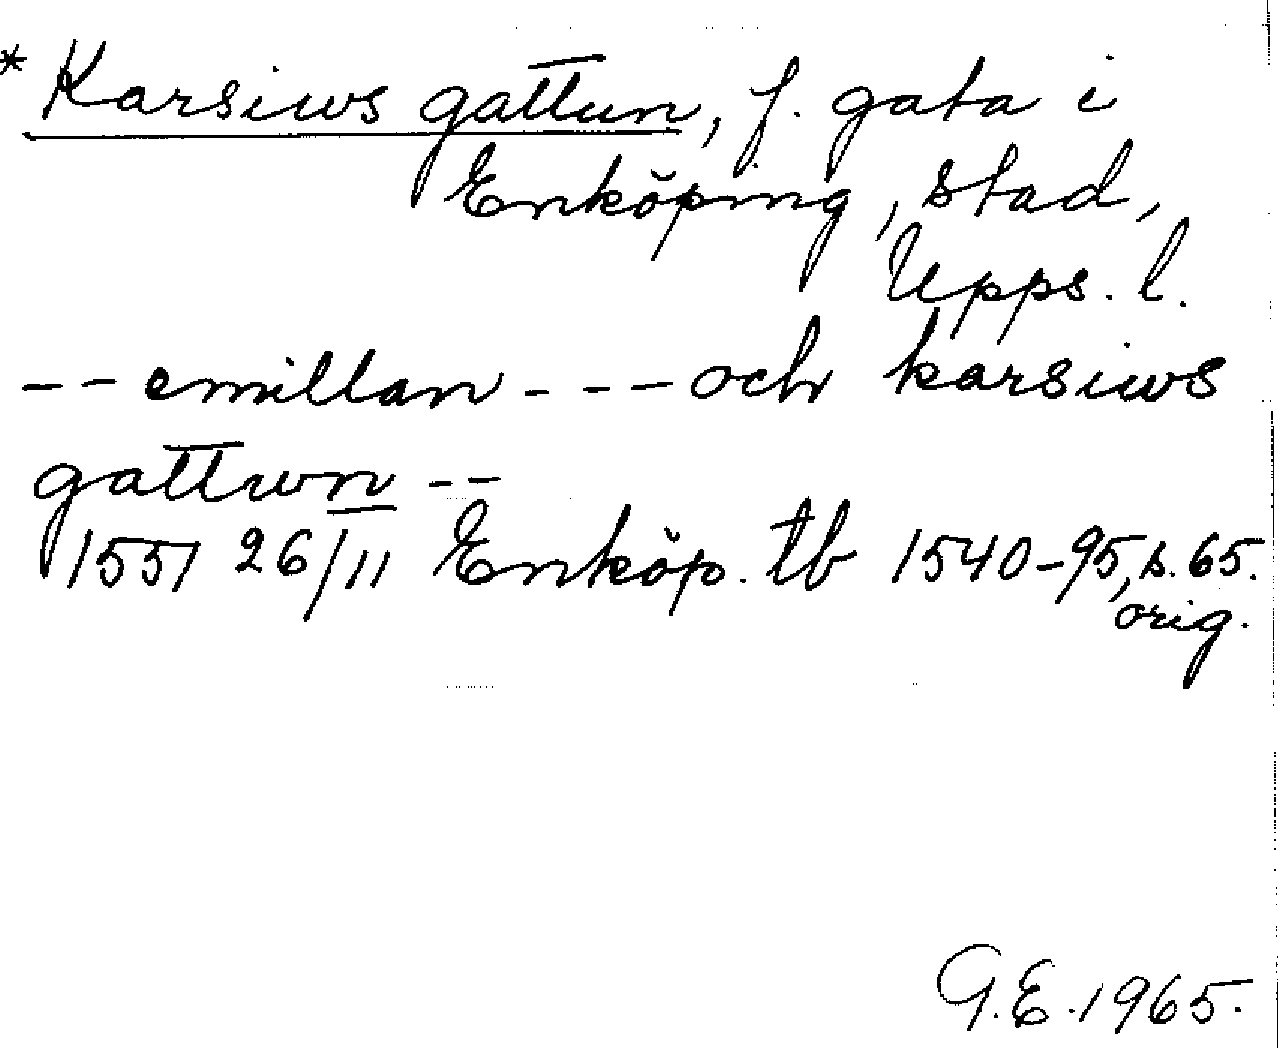 * Karsiws gattun, f. gata i
Enköping, stad,
Upps. l.
-- emillan --- och karsiws
gattwn --
1551 26/11 Enköp. tb 1540-95, s. 65.
orig.
G.E. 1965.